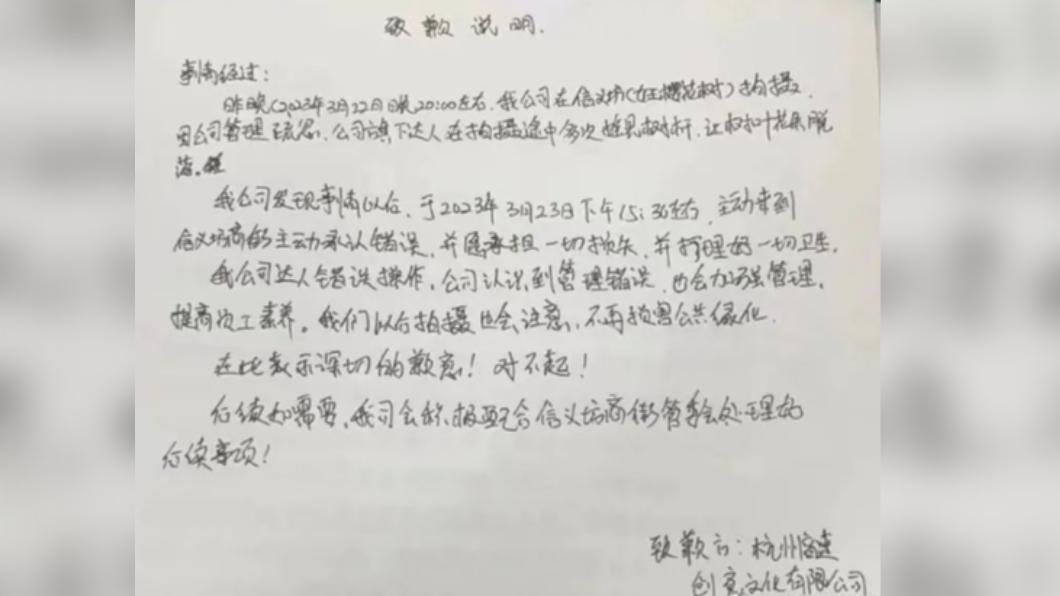 致歉说明.
事情经过:
昨晚(2023年3月22日晚20:00左右.我公司在信义坊(女王樱花树)拍摄.
因公司管理疏忽.公司旗下达人在拍摄途中多次摇晃树杆,让树叶花朵脱
落.
我公司发现事情以后,于2023年3月23日下午15:30左右,主动来到
信义坊商街主动承认错误,并愿承担一切损失,并打理好一切卫生.
我公司达人错误操作,公司认识到管理错误,也会加强管理,
提高员工素养。我们以后拍摄也会注意,不再损害公共绿化.
在此表示深切的歉意!对不起!
后续如需要,我司会积极配合信义坊商街管委会处理好
后续事项!
致歉方:杭州
创意文化有限公司